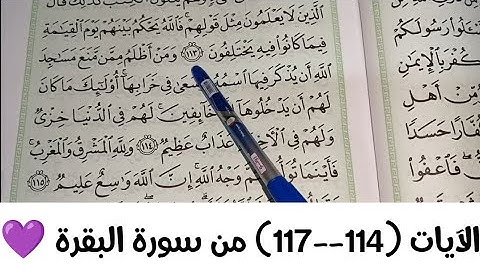 الَّذِينَ لَا يَعْلَمُونَ مِثْلَ قَوْلِهِمْ فَاللَّهُ يَحْكُمُ بَيْنَهُمْ يَوْمَ الْقِيَامَةِ
فِيمَا كَانُوا فِيهِ يَخْتَلِفُونَ ١١٣ وَمَنْ أَظْلَمُ مِمَّن مَّنَعَ مَسَاجِدَ
اللَّهِ أَن يُذْكَرَ فِيهَا اسْمُهُ سَعَىٰ فِي خَرَابِهَا أُولَٰئِكَ مَا كَانَ
لَهُمْ أَن يَدْخُلُوهَا خَائِفِينَ لَهُمْ فِي الدُّنْيَا خِزْيٌ
وَلَهُمْ فِي عَذَابٌ عَظِيمٌ ١١٤ وَلِلَّهِ الْمَشْرِقُ وَالْمَغْرِبُ
فَأَيْنَمَا تُوَلُّوا وَجْهُ اللَّهِ إِنَّ اللَّهَ وَاسِعٌ عَلِيمٌ ١١٥
كُفْرَ بِالْإِيمَٰنِ
مِّنْ أَهْلِ
كُفَّارًا حَسَدًا
فَاعْفُوا
الآيات (114--117) من سورة البقرة 💜